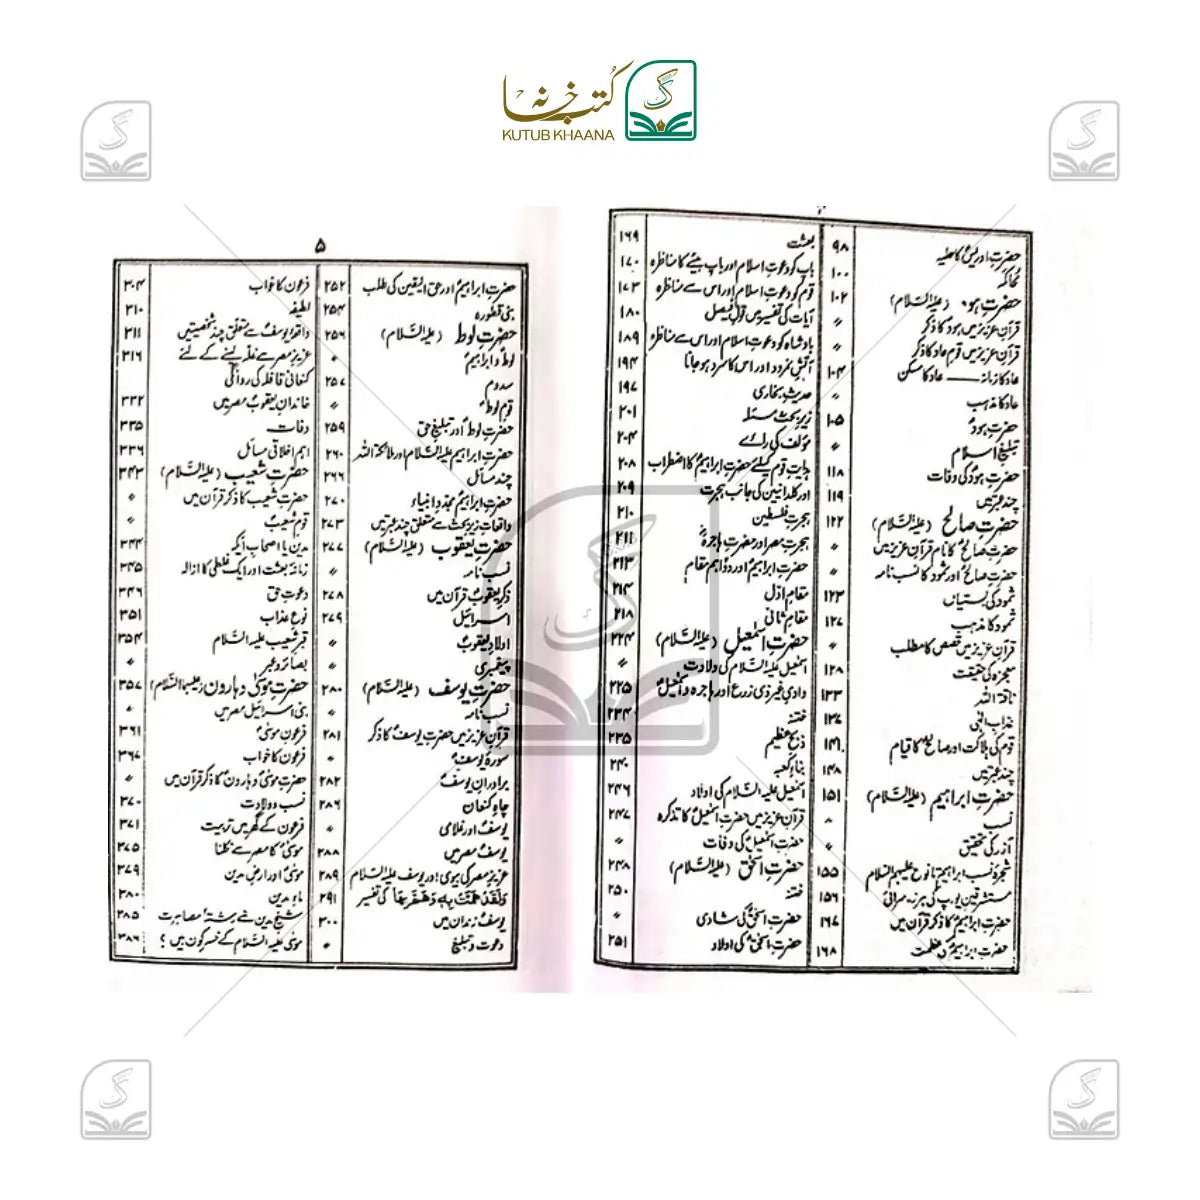 کتب خانہ
KUTUB KHAANA
حضرت ادریسؑ کا حلیہ ۹۸
محاکمہ ۱۰۰
حضرت ہودؑ (علیہ السّلام) ۱۰۲
قرآنِ عزیز میں ہودؑ کا ذکر 〃
قرآنِ عزیز میں قومِ عاد کا ذکر 〃
عاد کا زمانہ —— عاد کا مسکن ۱۰۴
عاد کا مذہب 〃
حضرت ہودؑ ۱۰۵
تبلیغِ اسلام 〃
حضرت ہودؑ کی وفات ۱۱۸
چند عبرتیں ۱۱۹
حضرت صالح (علیہ السّلام) ۱۲۲
حضرت صالحؑ کا نام قرآنِ عزیز میں 〃
حضرت صالحؑ اور ثمود کا نسب نامہ 〃
ثمود کی بستیاں ۱۲۳
ثمود کا مذہب ۱۲۷
قرآنِ عزیز میں قصص کا مطلب
معجزہ کی حقیقت ۱۲۸
ناقۃ اللہ ۱۳۳
عذابِ الٰہی ۱۳۷
قوم کی ہلاکت اور صالحؑ کا قیام ۱۴۱
چند عبرتیں ۱۴۸
حضرت ابراہیم (علیہ السّلام) ۱۵۱
نسب 〃
آزر کی تحقیق
شجرۂ نسب ابراہیمؑ تا نوح علیہما السلام ۱۵۵
مستشرقین یورپ کی ہرزہ سرائی ۱۵۶
حضرت ابراہیمؑ کا ذکر قرآن میں ۱۶۷
حضرت ابراہیمؑ کی عظمت ۱۶۸
بعثت ۱۶۹
باپ کو دعوتِ اسلام اور باپ بیٹے کا مناظرہ ۱۷۰
قوم کو دعوتِ اسلام اور اس سے مناظرہ ۱۷۳
آیات کی تفسیر میں قولِ فیصل ۱۸۰
بادشاہ کو دعوتِ اسلام اور اس سے مناظرہ ۱۸۹
آتشِ نمرود اور اس کا سرد ہو جانا ۱۹۴
حدیثِ بخاری ۱۹۷
زیرِ بحث مسئلہ ۲۰۱
مؤلف کی رائے ۲۰۴
ہدایتِ قوم کیلئے حضرت ابراہیمؑ کا اضطراب ۲۰۸
اور کلدانیین کی جانب ہجرت ۲۰۹
ہجرتِ فلسطین ۲۱۰
ہجرتِ مصر اور حضرت ہاجرہؓ ۲۱۱
حضرت ابراہیمؑ اور دو اہم مقام ۲۱۳
مقامِ اوّل ۲۱۴
مقامِ ثانی ۲۱۸
حضرت اسمٰعیل (علیہ السّلام) ۲۲۴
اسمٰعیل علیہ السّلام کی ولادت 〃
وادیِ غیر ذی زرع اور ہاجرہ و اسمٰعیلؑ ۲۲۵
ختنہ ۲۳۴
ذبحِ عظیم ۲۳۵
بناءِ کعبہ ۲۴۰
اسمٰعیل علیہ السّلام کی اولاد ۲۴۶
قرآنِ عزیز میں حضرت اسمٰعیلؑ کا تذکرہ ۲۴۷
حضرت اسمٰعیلؑ کی وفات 〃
حضرت اسحٰق (علیہ السّلام) ۲۴۸
ختنہ ۲۵۰
حضرت اسحٰقؑ کی شادی 〃
حضرت اسحٰقؑ کی اولاد ۲۵۱
۵
حضرت ابراہیمؑ اور حق الیقین کی طلب ۲۵۲
بنی قطورہ ۲۵۴
حضرت لوط (علیہ السّلام) ۲۵۶
لوطؑ و ابراہیمؑ 〃
سدوم ۲۵۷
قومِ لوطؑ 〃
حضرت لوطؑ اور تبلیغِ حق ۲۵۹
حضرت ابراہیم علیہ السّلام اور ملائکۃ اللہ ۲۶۰
چند مسائل ۲۶۶
حضرت ابراہیمؑ مجدد انبیاء ۲۷۰
واقعاتِ زیرِ بحث سے متعلق چند عبرتیں ۲۷۳
حضرت یعقوب (علیہ السّلام) ۲۷۷
نسب نامہ 〃
ذکرِ یعقوبؑ قرآن میں ۲۷۸
اسرائیل ۲۷۹
اولادِ یعقوبؑ 〃
پیغمبری 〃
حضرت یوسف (علیہ السّلام) ۲۸۰
نسب نامہ 〃
قرآنِ عزیز میں حضرت یوسفؑ کا ذکر ۲۸۱
سورۂ یوسفؑ
برادرانِ یوسفؑ ۲۸۲
چاہِ کنعان ۲۸۶
یوسفؑ اور غلامی 〃
یوسفؑ مصر میں ۲۸۸
عزیزِ مصر کی بیوی اور یوسف علیہ السّلام ۲۸۹
وَلَقَدْ هَمَّتْ بِهٖ وَهَمَّ بِهَا کی تفسیر ۲۹۱
یوسفؑ زنداں میں ۳۰۰
دعوت و تبلیغ 〃
فرعون کا خواب ۳۰۴
لطیفہ ۳۱۰
واقعۂ یوسفؑ سے متعلق چند شخصیتیں ۳۱۱
عزیزِ مصر سے غلہ لینے کے لئے ۳۱۶
کنعانی قافلہ کی روانگی
خاندانِ یعقوبؑ مصر میں ۳۳۲
وفات ۳۳۵
اہم اخلاقی مسائل ۳۳۶
حضرت شعیب (علیہ السّلام) ۳۴۳
حضرت شعیبؑ کا ذکر قرآن میں 〃
قومِ شعیبؑ 〃
مدین یا اصحابِ ایکہ ۳۴۴
زمانۂ بعثت اور ایک غلطی کا ازالہ ۳۴۵
دعوتِ حق ۳۴۶
نوعِ عذاب ۳۵۱
قبرِ شعیب علیہ السّلام ۳۵۴
بصائر و عبر 〃
حضرت موسیٰ و ہارون (علیہما السّلام) ۳۵۷
بنی اسرائیل مصر میں 〃
فرعونِ موسیٰؑ ۳۶۱
فرعون کا خواب ۳۶۷
حضرت موسیٰؑ و ہارونؑ کا ذکر قرآن میں 〃
نسب و ولادت ۳۷۰
فرعون کے گھر میں تربیت ۳۷۱
موسیٰؑ کا مصر سے نکلنا ۳۷۵
موسیٰؑ اور ارضِ مدین ۳۷۹
ماءِ مدین ۳۸۰
شیخِ مدین سے رشتۂ مصاہرت ۳۸۵
موسیٰ علیہ السّلام کے خسر کون ہیں؟ ۳۸۶